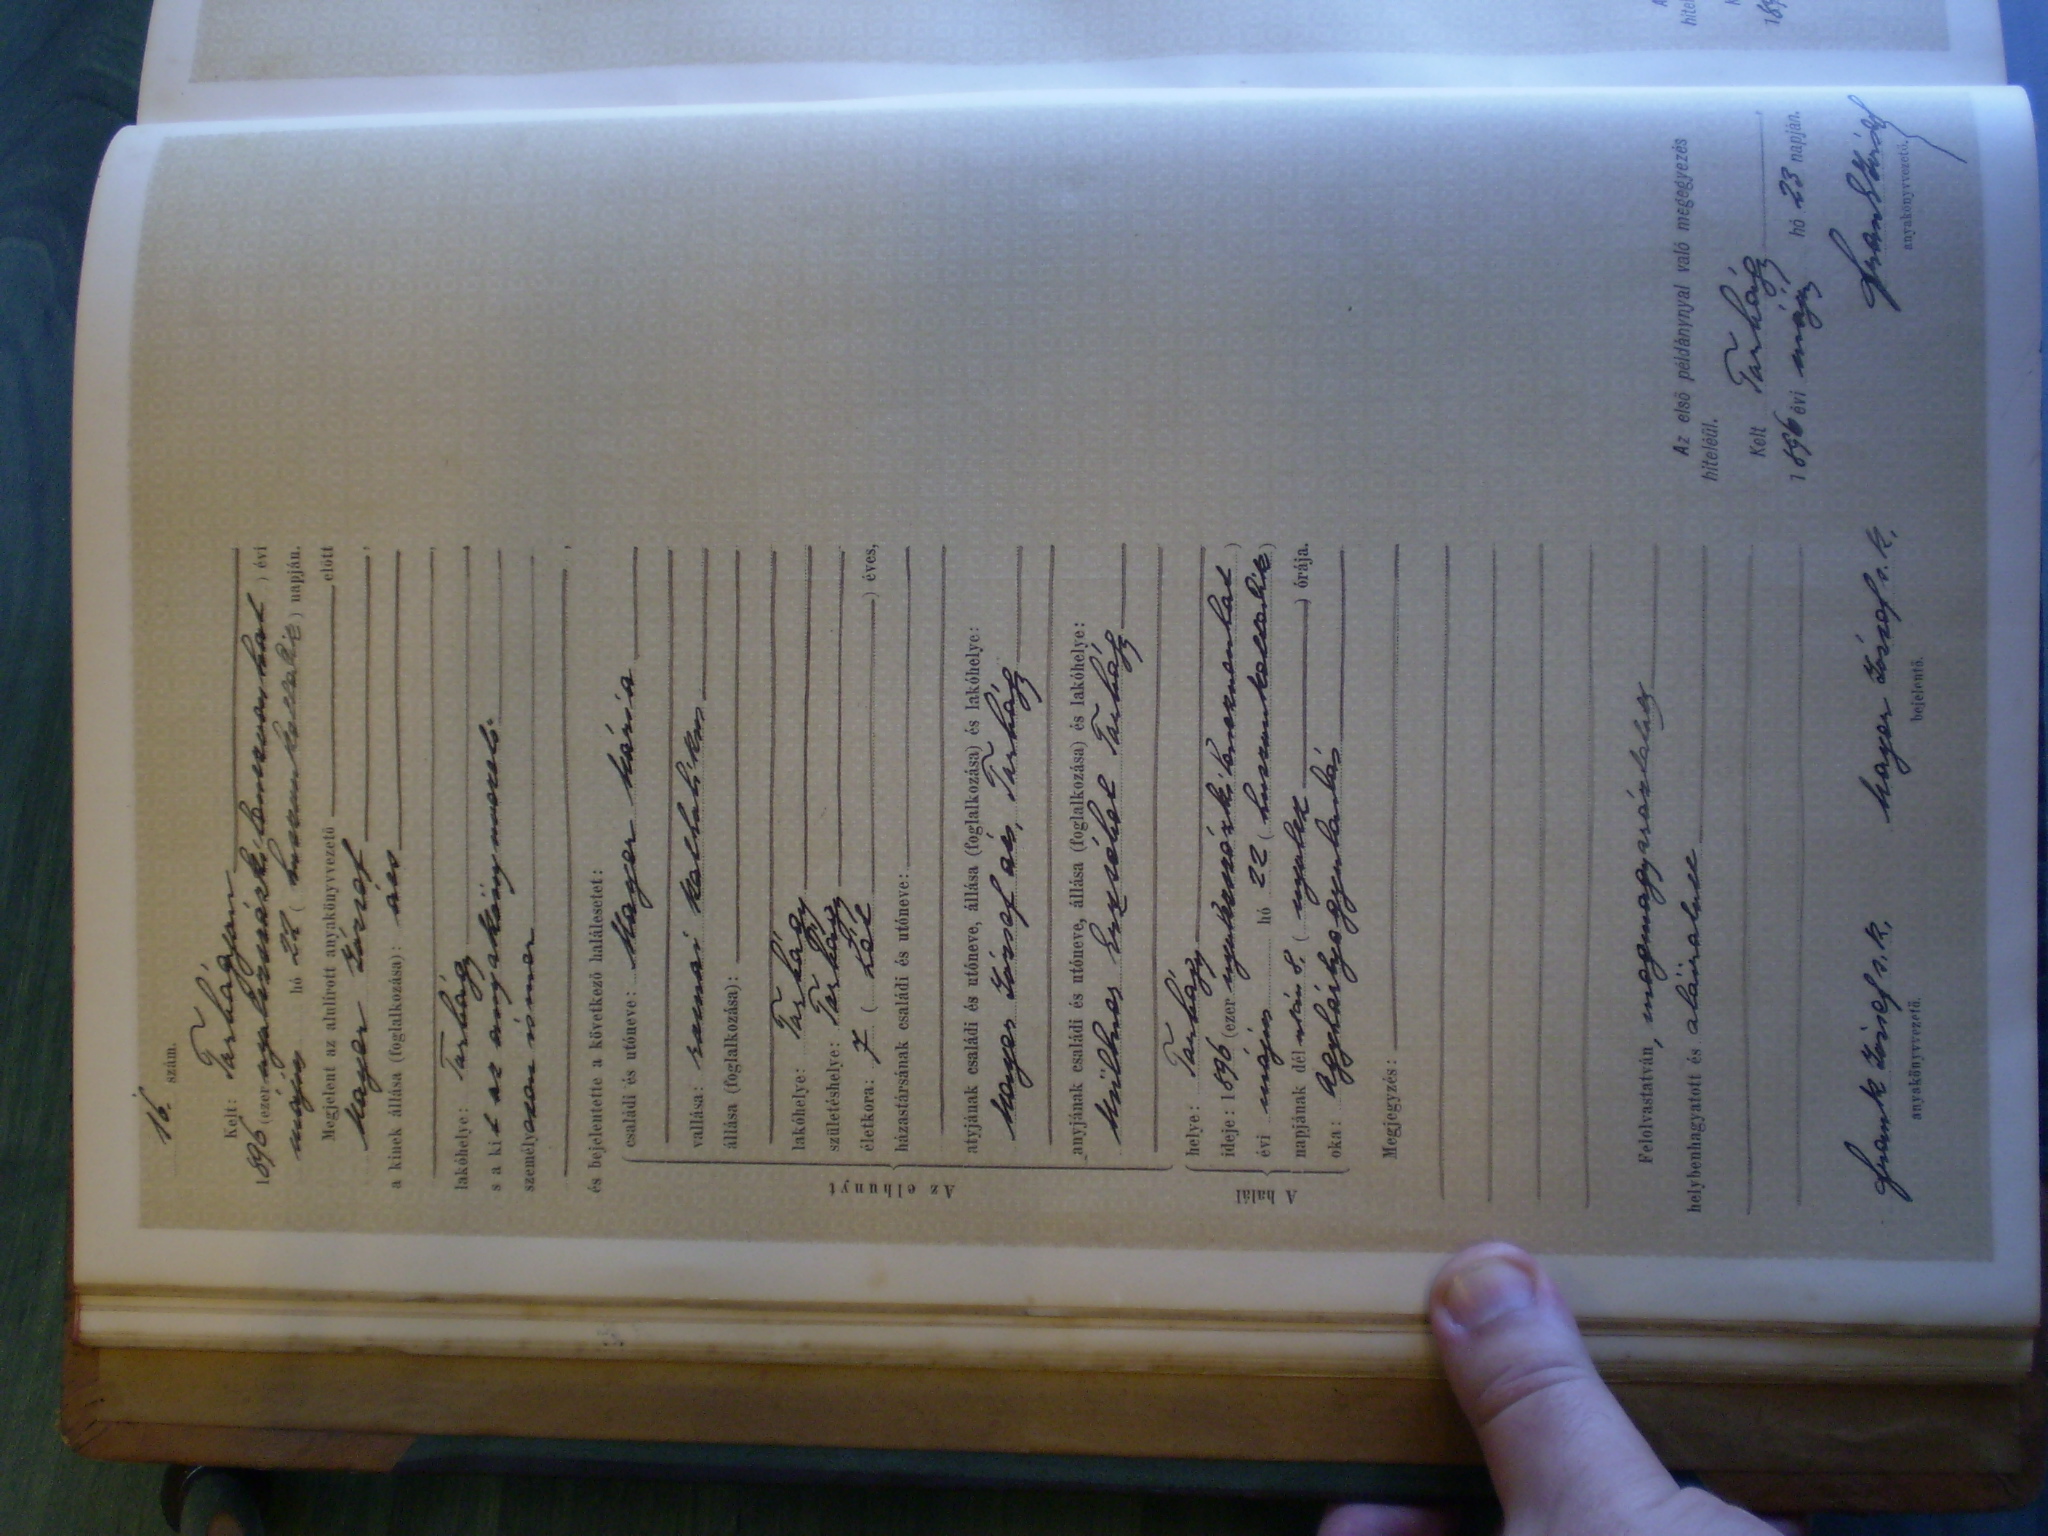 16. szám.
Kelt: Tarhágyán
1896 (ezer nyolczszázkilenczvenhat) évi
május hó 22 (huszonkettedik) napján.
Megjelent az alulirott anyakönyvvezető előtt
Mayer József
a kinek állása (foglalkozása): ács
lakóhelye:
s a kit az anyakönyvvezető
személyesen ismer
és bejelentette a következő halálesetet:
Az elhunyt
családi és utóneve: Mayer Mária
vallása: római katholikus
állása (foglalkozása):
lakóhelye:
születéshelye:
életkora: 7 (hét) éves,
házastársának családi és utóneve:
atyjának családi és utóneve, állása (foglalkozása) és lakóhelye:
Mayer József ács,
anyjának családi és utóneve, állása (foglalkozása) és lakóhelye:
Erzsébet
A halál
helye:
ideje: 1896 (ezer nyolczszázkilenczvenhat)
évi május hó 22 (huszonkettedik)
napjának dél után 8. (nyolcz) órája.
oka: agyhártyagyuladás
Megjegyzés:
Felolvastatván, megmagyaráztatván,
helybenhagyatott és aláiratott
Frank József s. k.
anyakönyvvezető.
Mayer József s. k.
bejelentő.
Az első példánynyal való megegyezés
hiteléül.
Kelt
1896 évi május hó 23 napján.
Frank József
anyakönyvvezető.